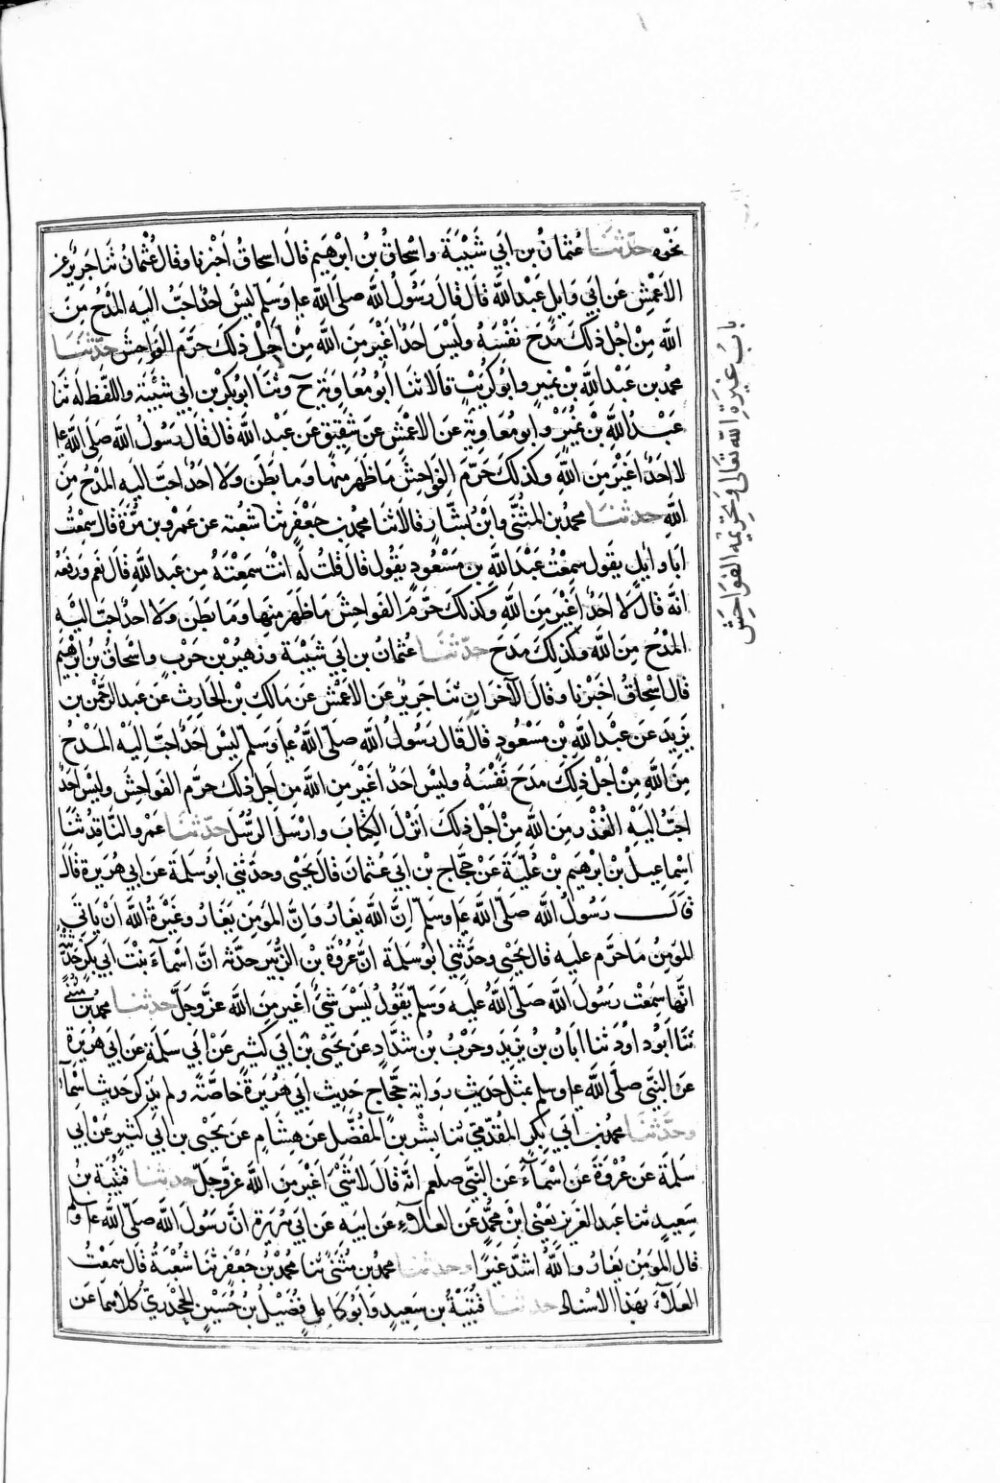 نحوه حدثنا عثمان بن ابي شيبة واسحاق بن ابرهيم قال اسحاق اخبرنا وقال عثمان ثنا جرير عن
الاعمش عن ابي وايل عبد الله قال قال رسول الله صلى الله عليه وسلم ليس احد احب اليه المدح من
الله من اجل ذلك مدح نفسه وليس احد اغير من الله من اجل ذلك حرم الفواحش حدثنا
محمد بن عبد الله بن نمير وابو كريب قالا ثنا ابو معاوية ح وثنا ابو بكر بن ابي شيبة واللفظ له ثنا
عبد الله بن نمير وابو معاوية عن الاعمش عن شقيق عن عبد الله قال قال رسول الله صلى الله عليه
لا احد اغير من الله وكذلك حرم الفواحش ما ظهر منها وما بطن ولا احد احب اليه المدح من
الله حدثنا محمد بن المثنى وابن بشار قالا ثنا محمد بن جعفر ثنا شعبة عن عمرو بن مرة قال سمعت
ابا وايل يقول سمعت عبد الله بن مسعود يقول قال قلت له انت سمعته من عبد الله قال نعم ورفعه
انه قال لا احد اغير من الله وكذلك حرم الفواحش ما ظهر منها وما بطن ولا احد احب اليه
المدح من الله وكذلك مدح حدثنا عثمان بن ابي شيبة وزهير بن حرب واسحاق بن ابرهيم
قال اسحاق اخبرنا وقال الآخران ثنا جرير عن الاعمش عن مالك بن الحارث عن عبد الرحمن بن
يزيد عن عبد الله بن مسعود قال قال رسول الله صلى الله عليه وسلم ليس احد احب اليه المدح
من الله من اجل ذلك مدح نفسه وليس احد اغير من الله من اجل ذلك حرم الفواحش وليس احد
احب اليه العذر من الله من اجل ذلك انزل الكتاب وارسل الرسل حدثنا عمرو الناقد ثنا
اسماعيل بن ابرهيم بن علية عن حجاج بن ابي عثمان قال قال يحيى وحدثني ابو سلمة عن ابي هريرة قال
قال رسول الله صلى الله عليه وسلم ان الله يغار وان المومن يغار وغيرة الله ان ياتي
المومن ما حرم عليه قال يحيى وحدثني ابو سلمة ان عروة بن الزبير حدثه ان اسمآء بنت ابي بكر حدثته
انها سمعت رسول الله صلى الله عليه وسلم يقول ليس شيئ اغير من الله عز وجل حدثنا محمد بن مثنى
ثنا ابو داود ثنا ابان بن يزيد وحرب بن شداد عن يحيى بن ابي كثير عن ابي سلمة عن ابي هريرة
عن النبي صلى الله عليه وسلم بمثل حديث رواية حجاج حديث ابي هريرة خاصة ولم يذكر حديث اسمآء
وحدثنا محمد بن ابي بكر المقدمي ثنا بشر بن المفضل عن هشام عن يحيى بن ابي كثير عن ابي
سلمة عن عروة عن اسمآء عن النبي صلعم انه قال لا شئ اغير من الله عز وجل حدثنا قتيبة بن
سعيد ثنا عبد العزيز يعني ابن محمد عن العلآء عن ابيه عن ابي هريرة ان رسول الله صلى الله عليه وسلم
قال المومن يغار والله اشد غيرا وحدثنا محمد بن مثنى ثنا محمد بن جعفر ثنا شعبة قال سمعت
العلآء بهذا الاسناد حدثنا قتيبة بن سعيد وابو كامل فضيل بن حسين الجحدري كلاهما عن
باب غيرة الله تعالى وتحريمه الفواحش